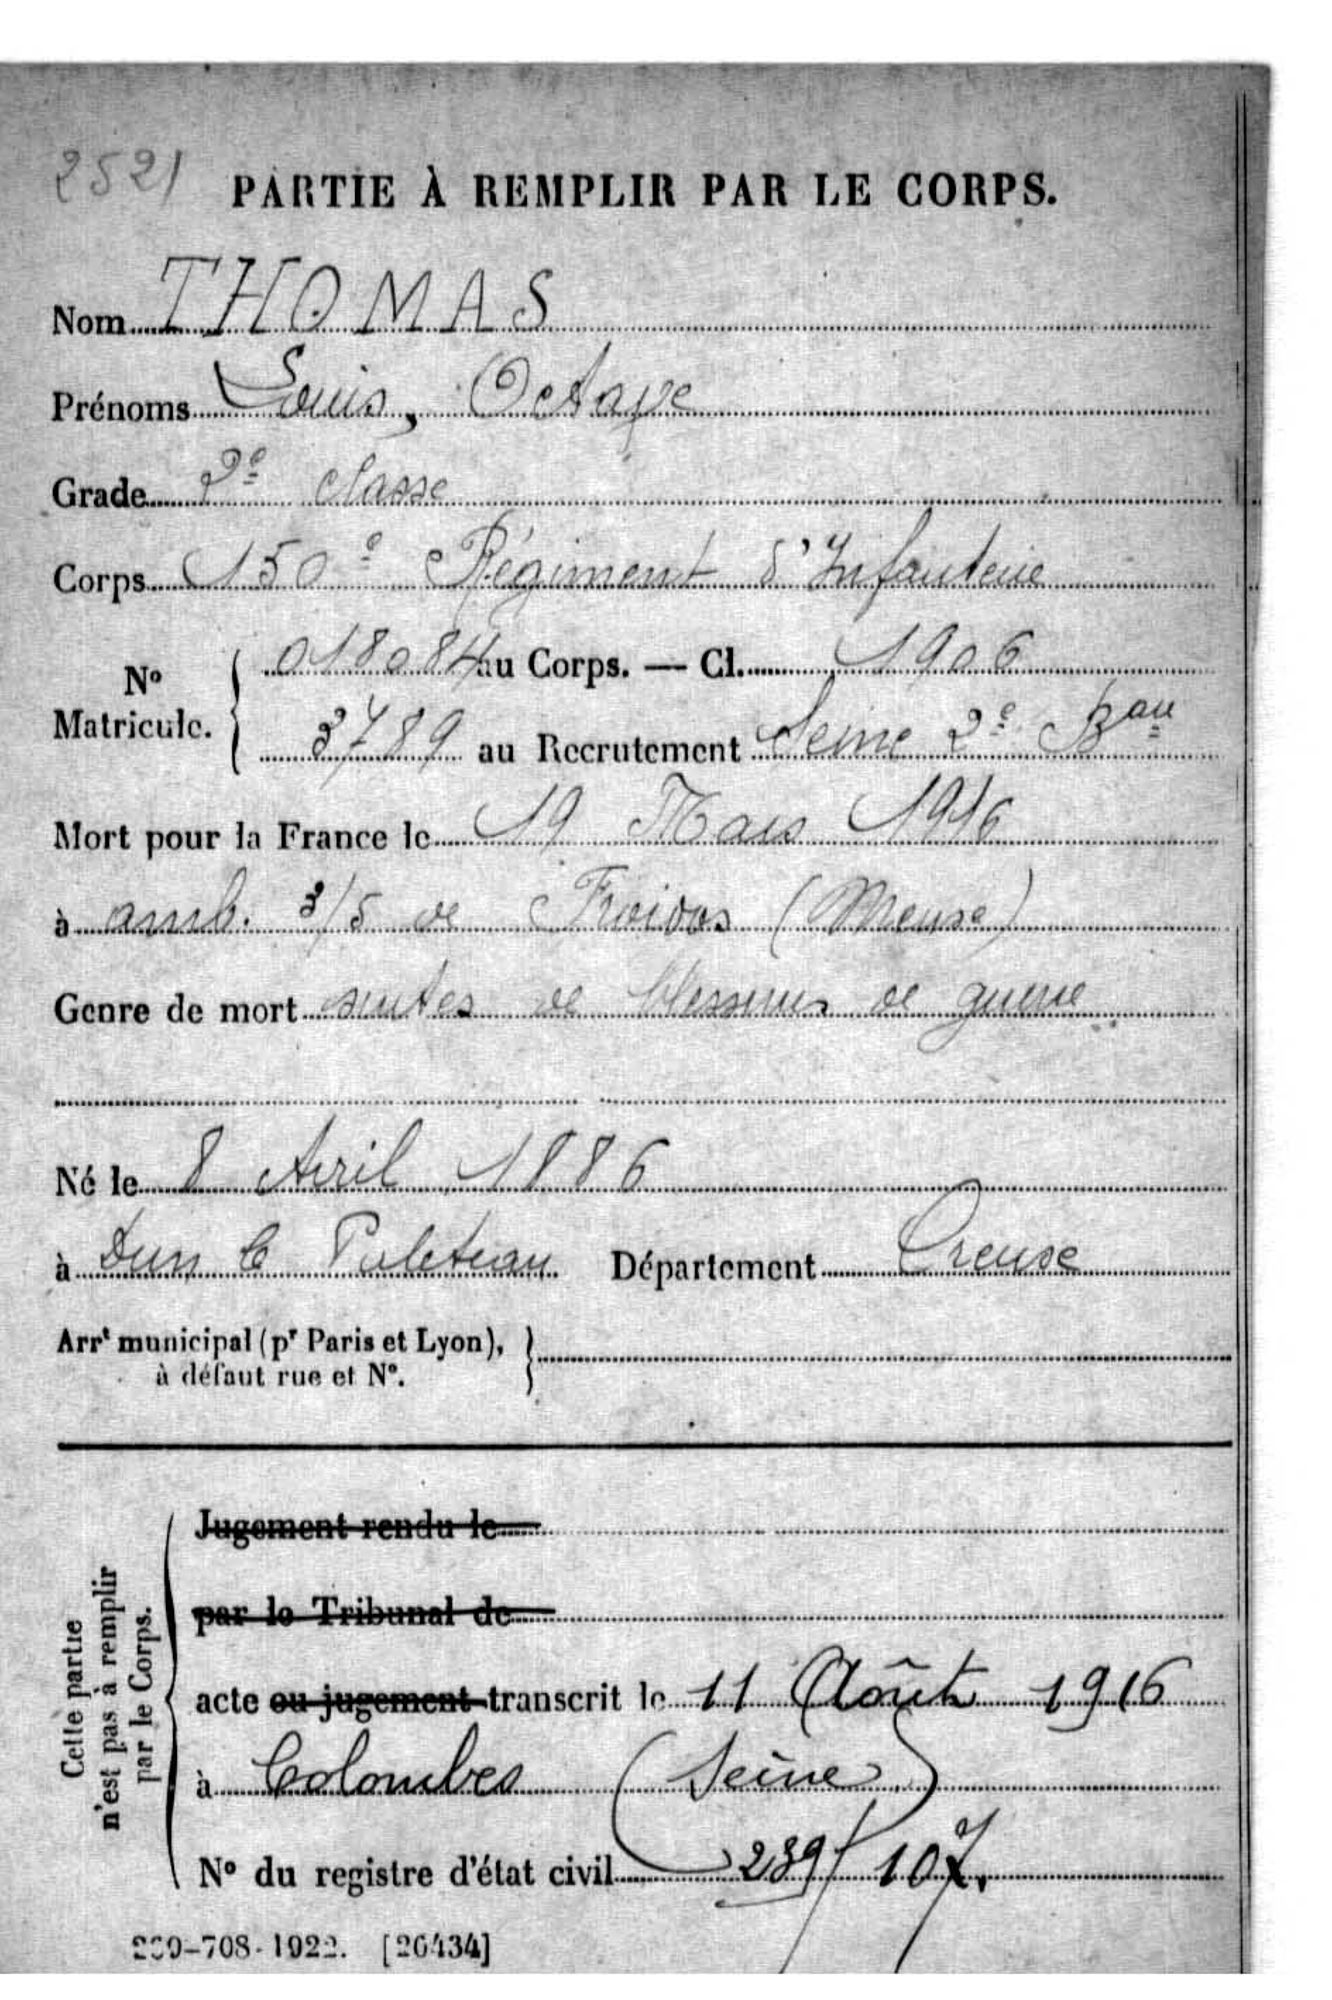 2521
PARTIE À REMPLIR PAR LE CORPS.
Nom THOMAS
Prénoms Louis, Octave
Grade 2e classe
Corps 150e Régiment d'Infanterie
No Matricule. { 018084 au Corps. — Cl. 1906
3789 au Recrutement Seine 2e Bau
Mort pour la France le 19 Mars 1916
à amb. 3/5 de Froidos (Meuse)
Genre de mort suites de blessures de guerre
Né le 8 Avril 1886
à Dun le Paleteau Département Creuse
Arrt municipal (pr Paris et Lyon),
à défaut rue et No.
Cette partie
n'est pas à remplir
par le Corps.
Jugement rendu le
par le Tribunal de
acte ou jugement transcrit le 11 Août 1916
à Colombes (Seine)
No du registre d'état civil 239/107.
-708-1922. [26434]